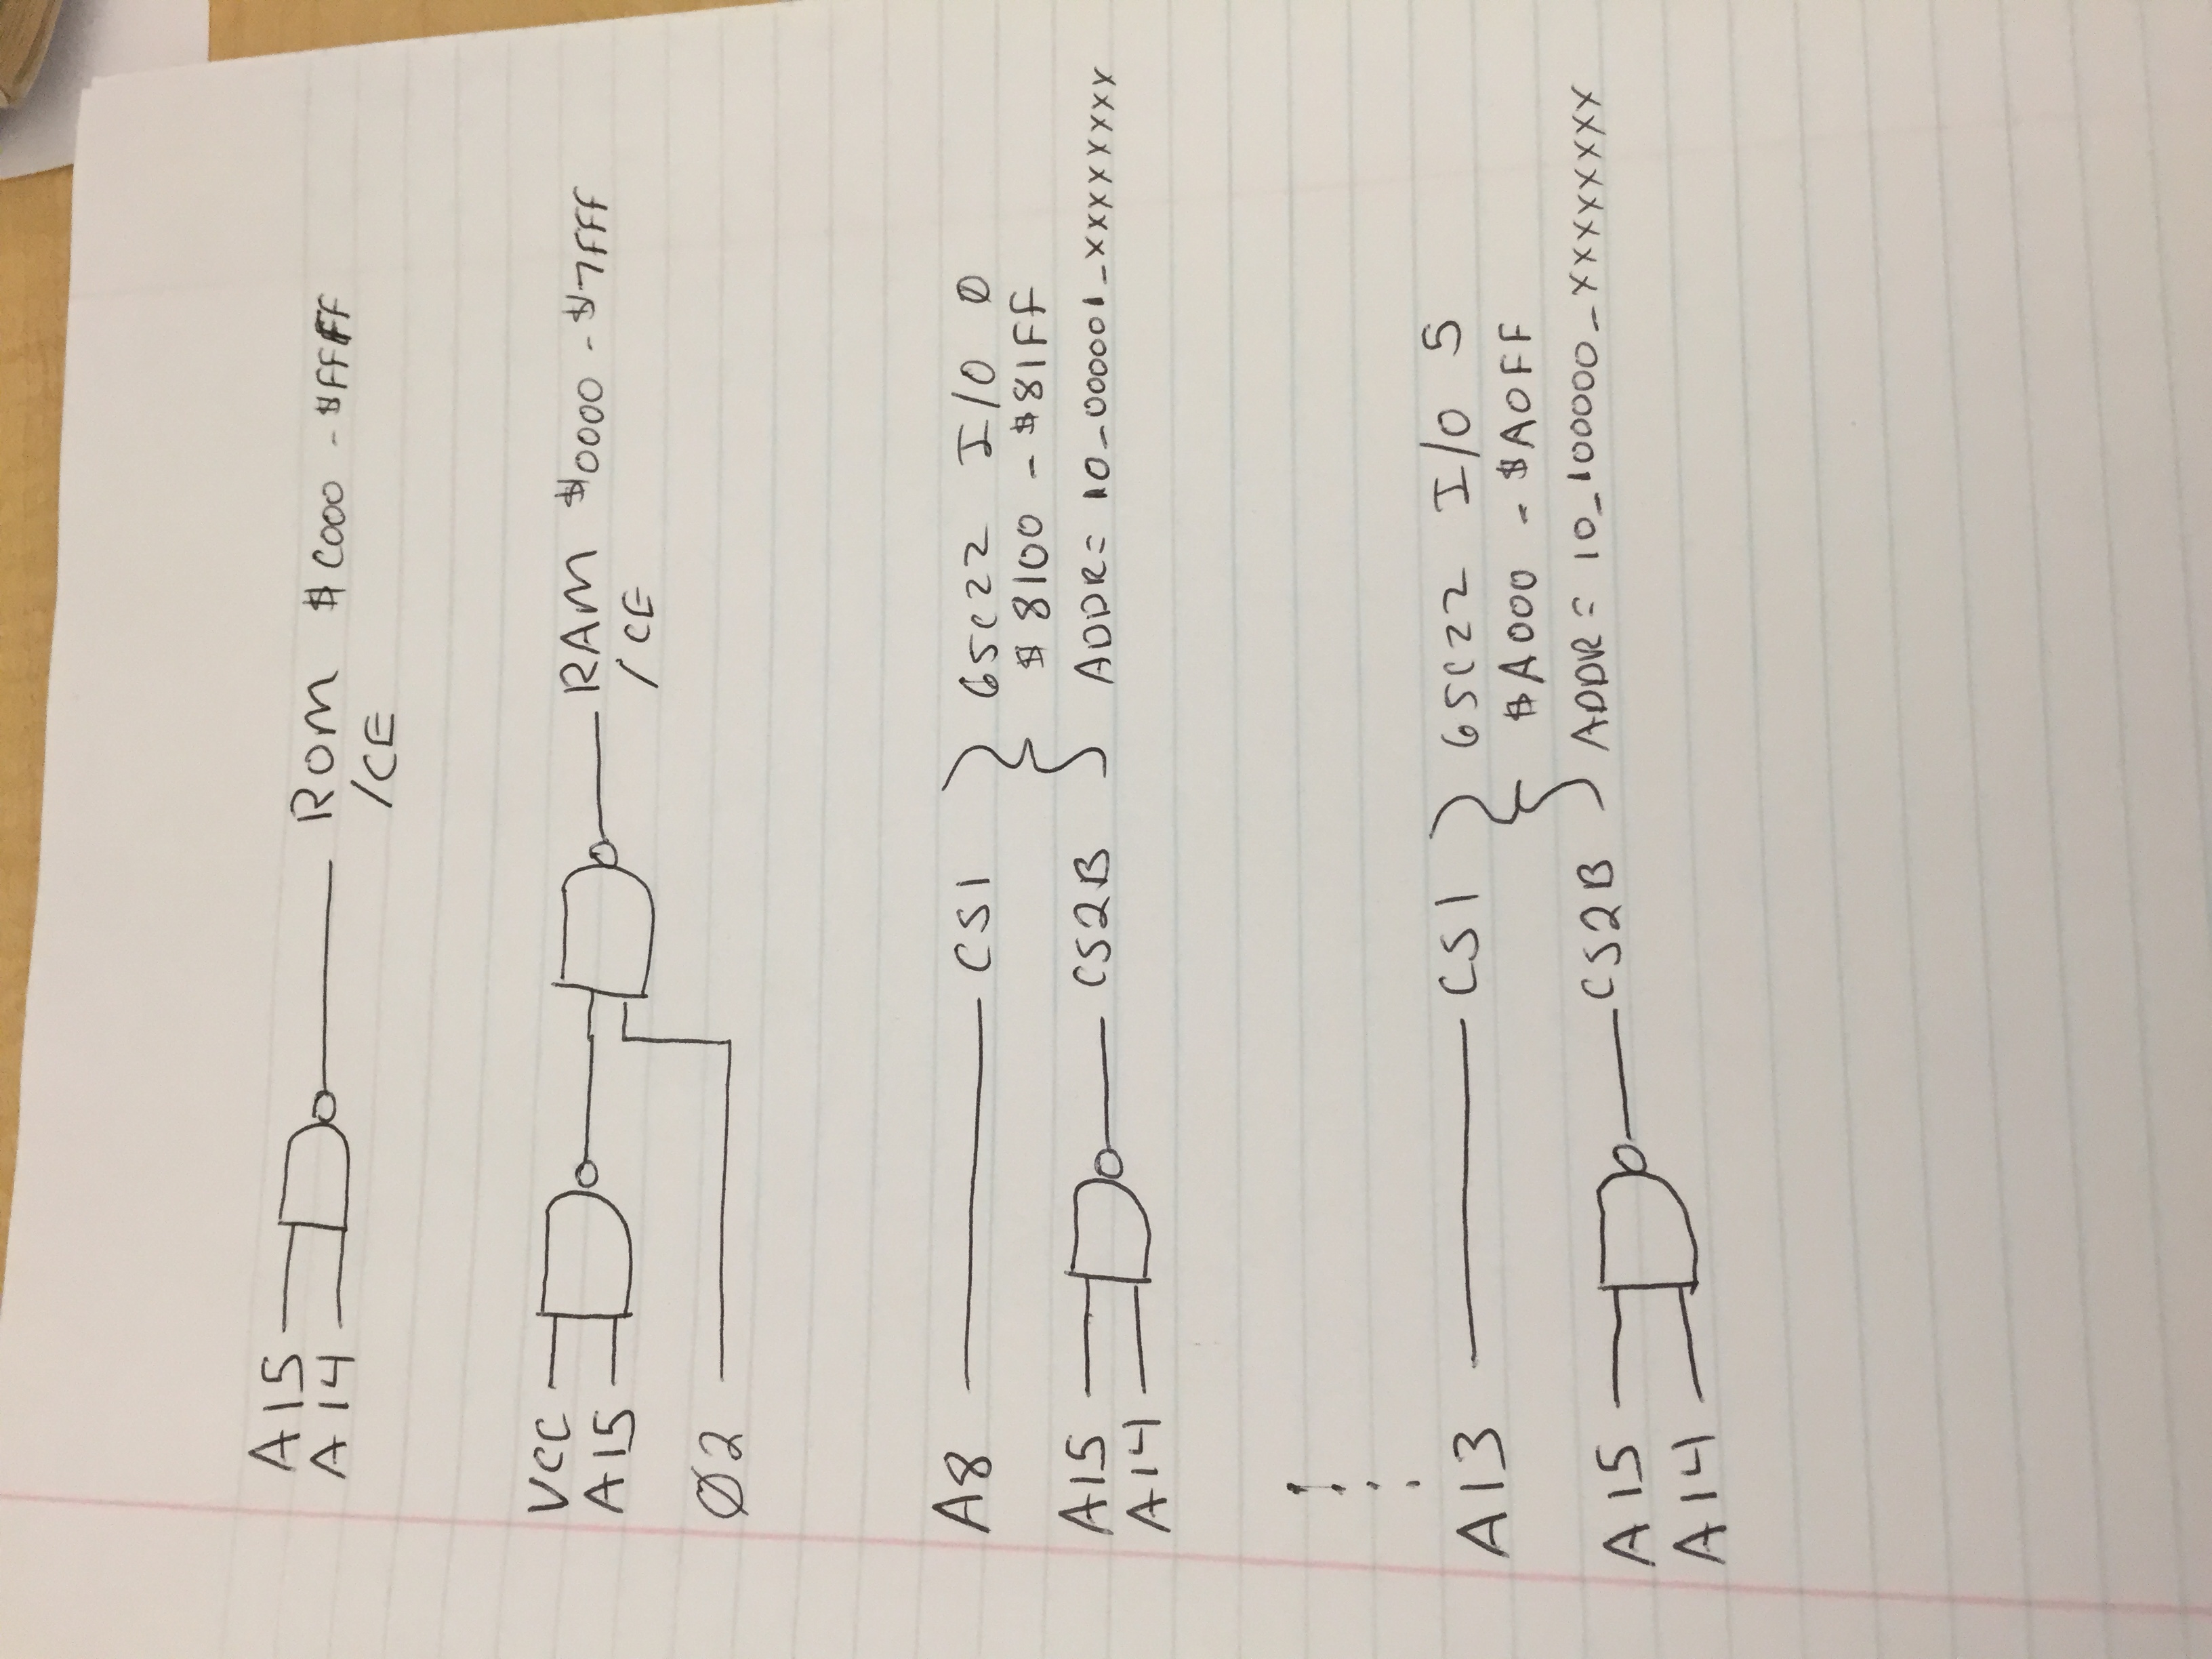 A15
A14
ROM $C000 - $FFFF
/CE
VCC
A15
RAM $0000 - $7FFF
/CE
Ø2
A8
CS1
65C22 I/O 0
$8100 - $81FF
A15
A14
CS2B
ADDR= 10_000001_xxxxxxxx
A13
CS1
65C22 I/O 5
$A000 - $A0FF
A15
A14
CS2B
ADDR= 10_100000_xxxxxxxx